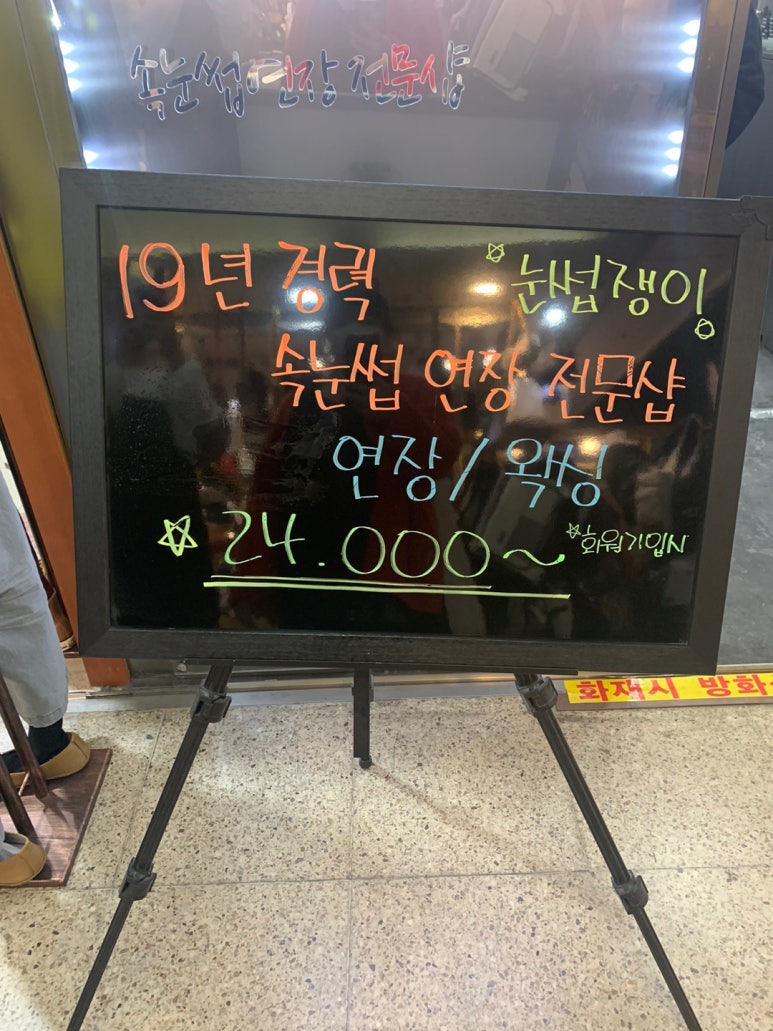 속눈썹연장전문샵
19년 경력 눈썹쟁이
속눈썹 연장 전문샵
연장/왁싱
24.000~ 회원가입시
화재시 방화